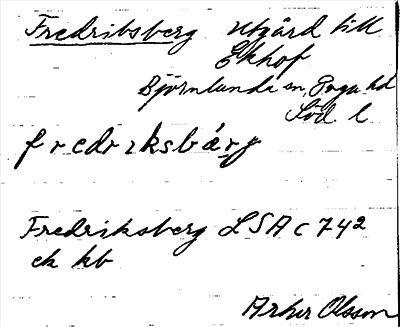 Fredriksberg Utgård till
Ekhof
Björnlunda sn, Daga hd
Söd l
fredrıksbärg
Fredriksberg LSA C 742
ek kb
Arher Olsson